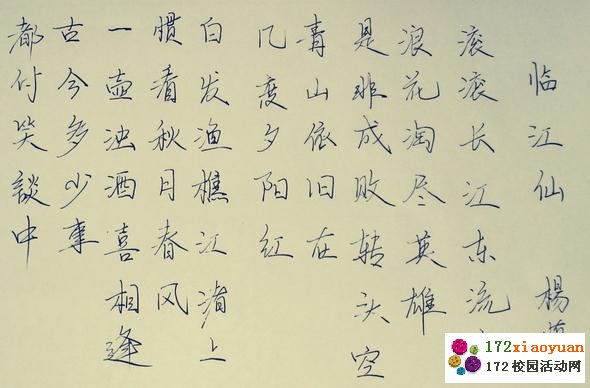 临江仙 楊
滚滚长江东流
浪花淘尽英雄
是非成败转头空
青山依旧在
几度夕阳红
白发渔樵江渚上
惯看秋月春风
一壶浊酒喜相逢
古今多少事
都付笑談中
172xiaoyuan
172校园活动网